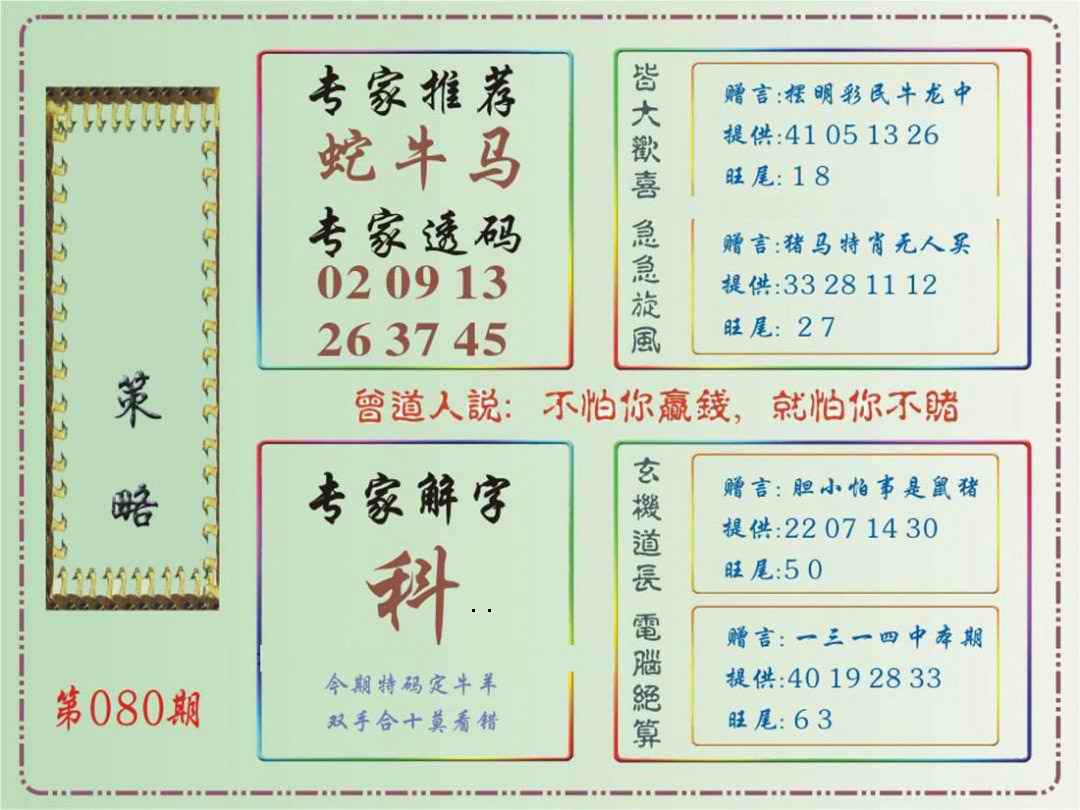 策
略
第080期
专家推荐
蛇牛马
专家透码
02 09 13
26 37 45
皆大歡喜
赠言:摆明彩民牛龙中
提供:41 05 13 26
旺尾: 1 8
急急旋風
赠言:猪马特肖无人买
提供:33 28 11 12
旺尾: 2 7
曾道人説: 不怕你贏錢, 就怕你不賭
专家解字
科..
今期特码定牛羊
双手合十莫看错
玄機道長
赠言: 胆小怕事是鼠猪
提供:22 07 14 30
旺尾:5 0
電腦絕算
赠言: 一三一四中本期
提供:40 19 28 33
旺尾: 6 3